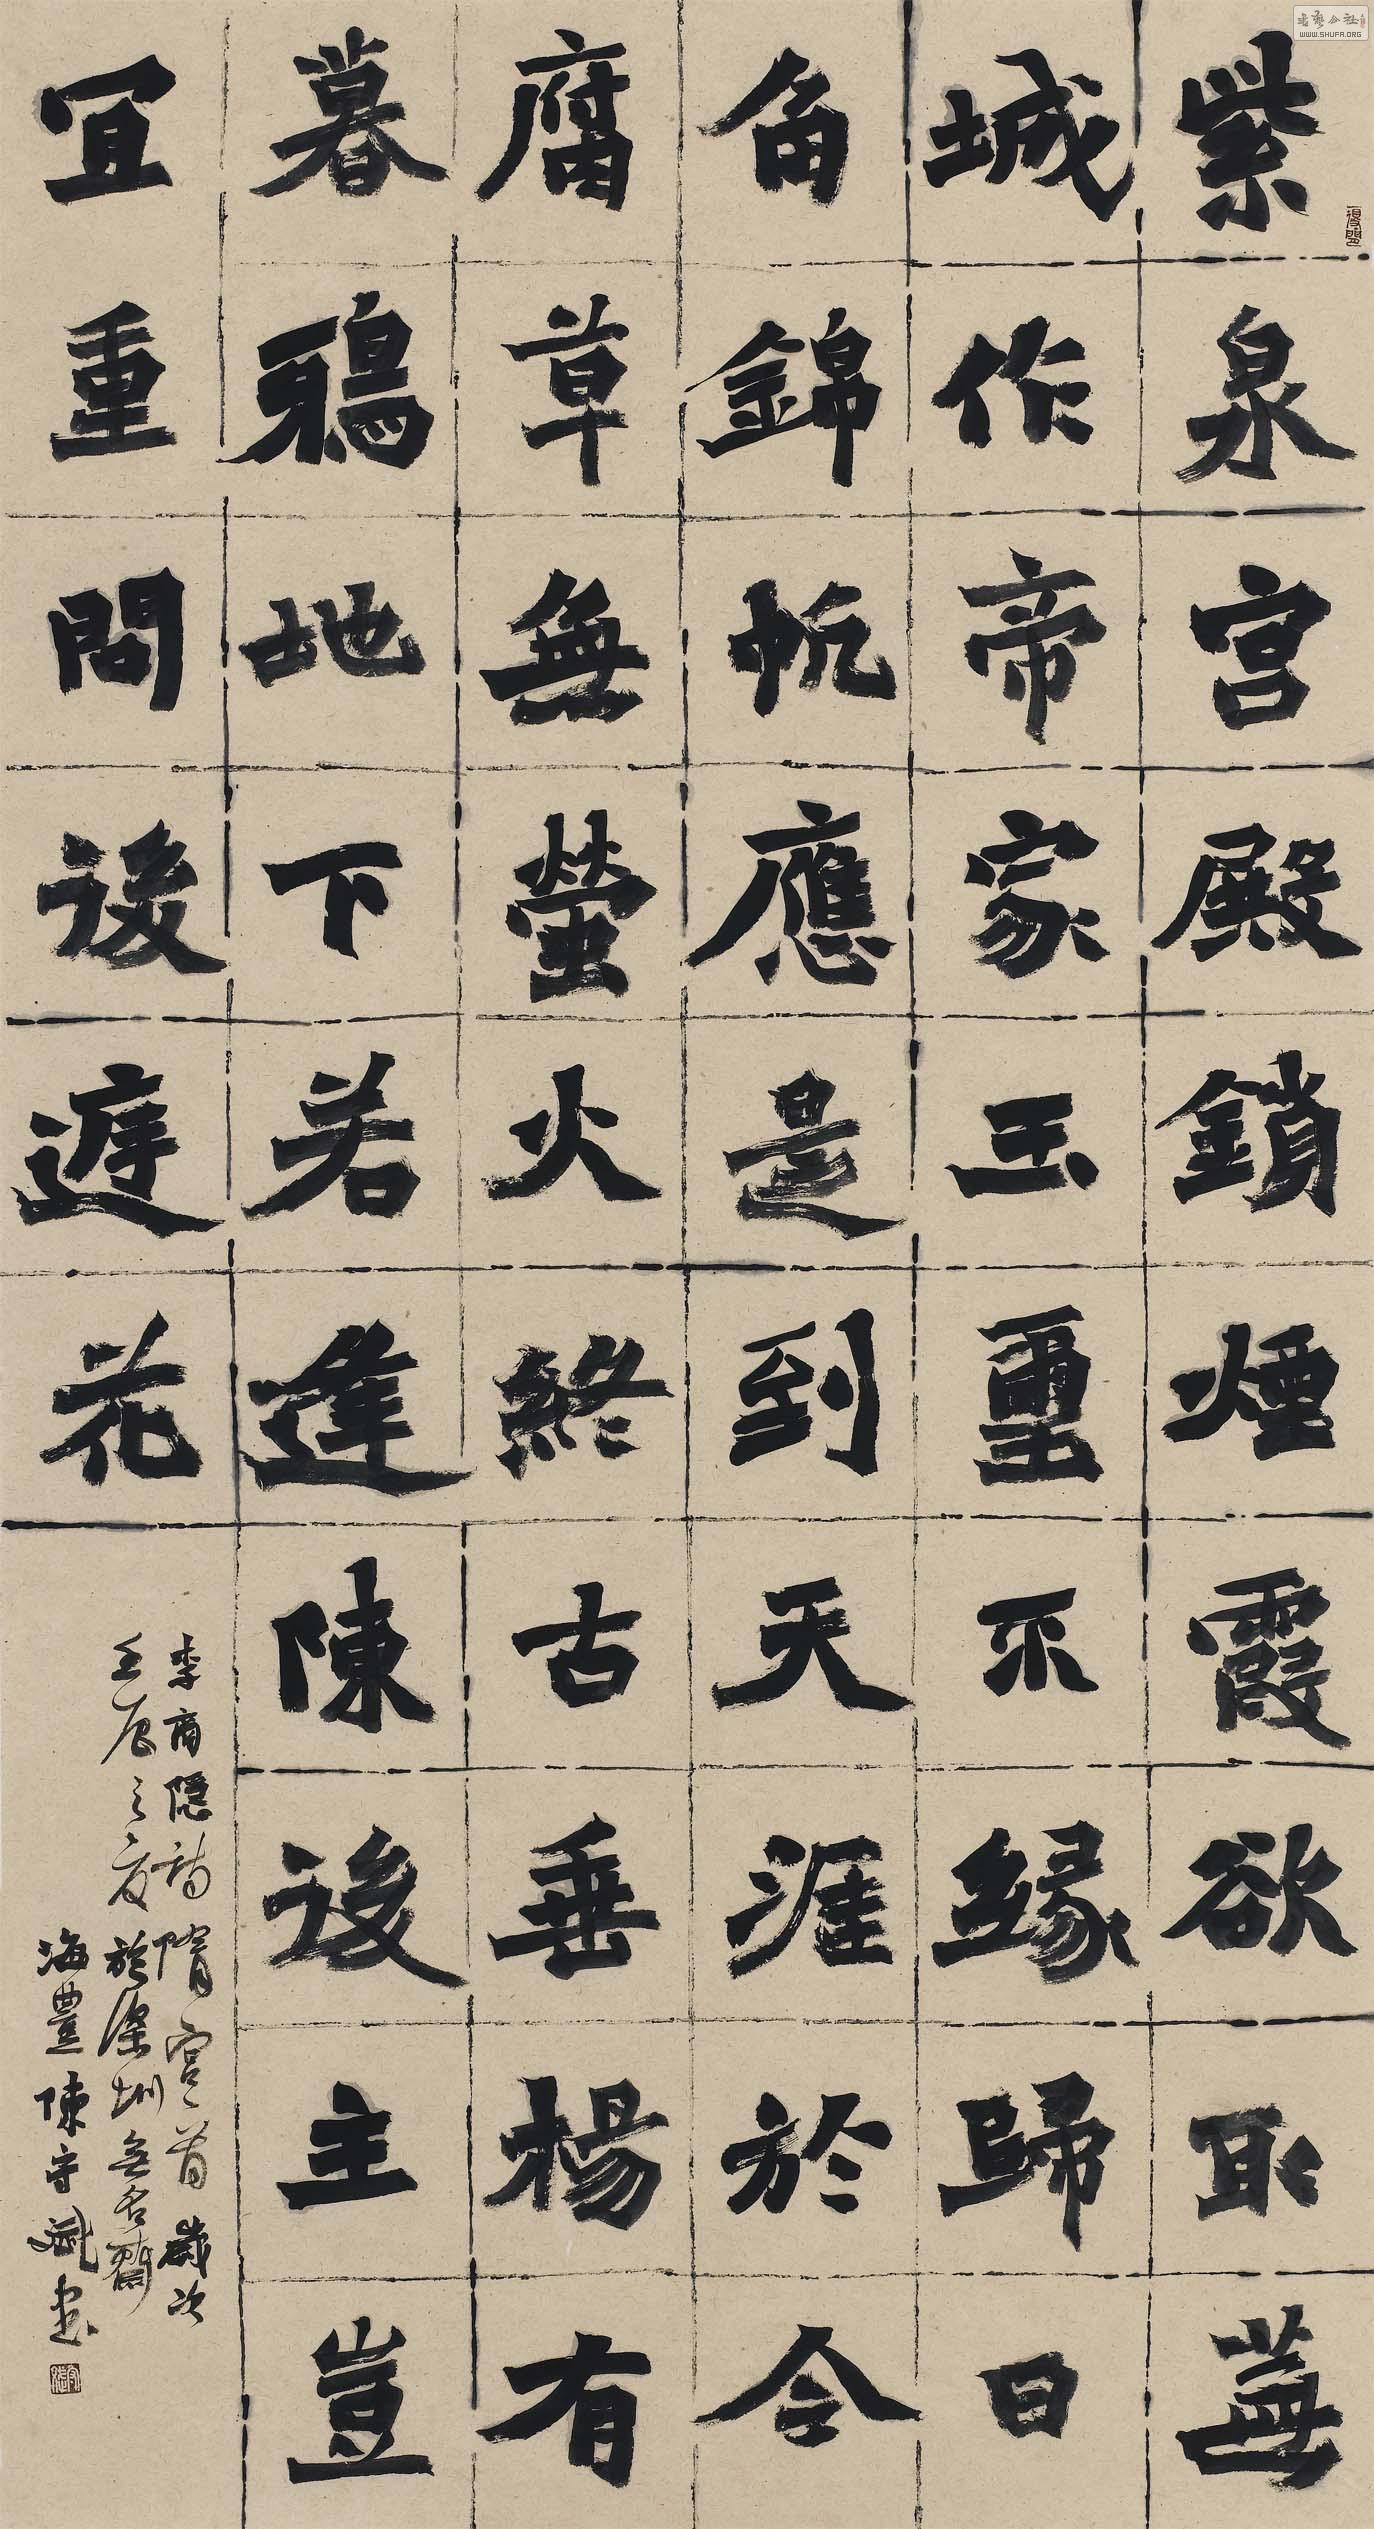 紫泉宮殿鎖煙霞欲取蕪
城作帝家玉璽不緣歸日
角錦帆應是到天涯於今
腐草無螢火終古垂楊有
暮鴉地下若逢陳後主豈
宜重問後庭花
李商隱詩隋宮首歲次
壬辰之夏於深圳無名齋
海豐陳守斌書
WWW.SHUFA.ORG